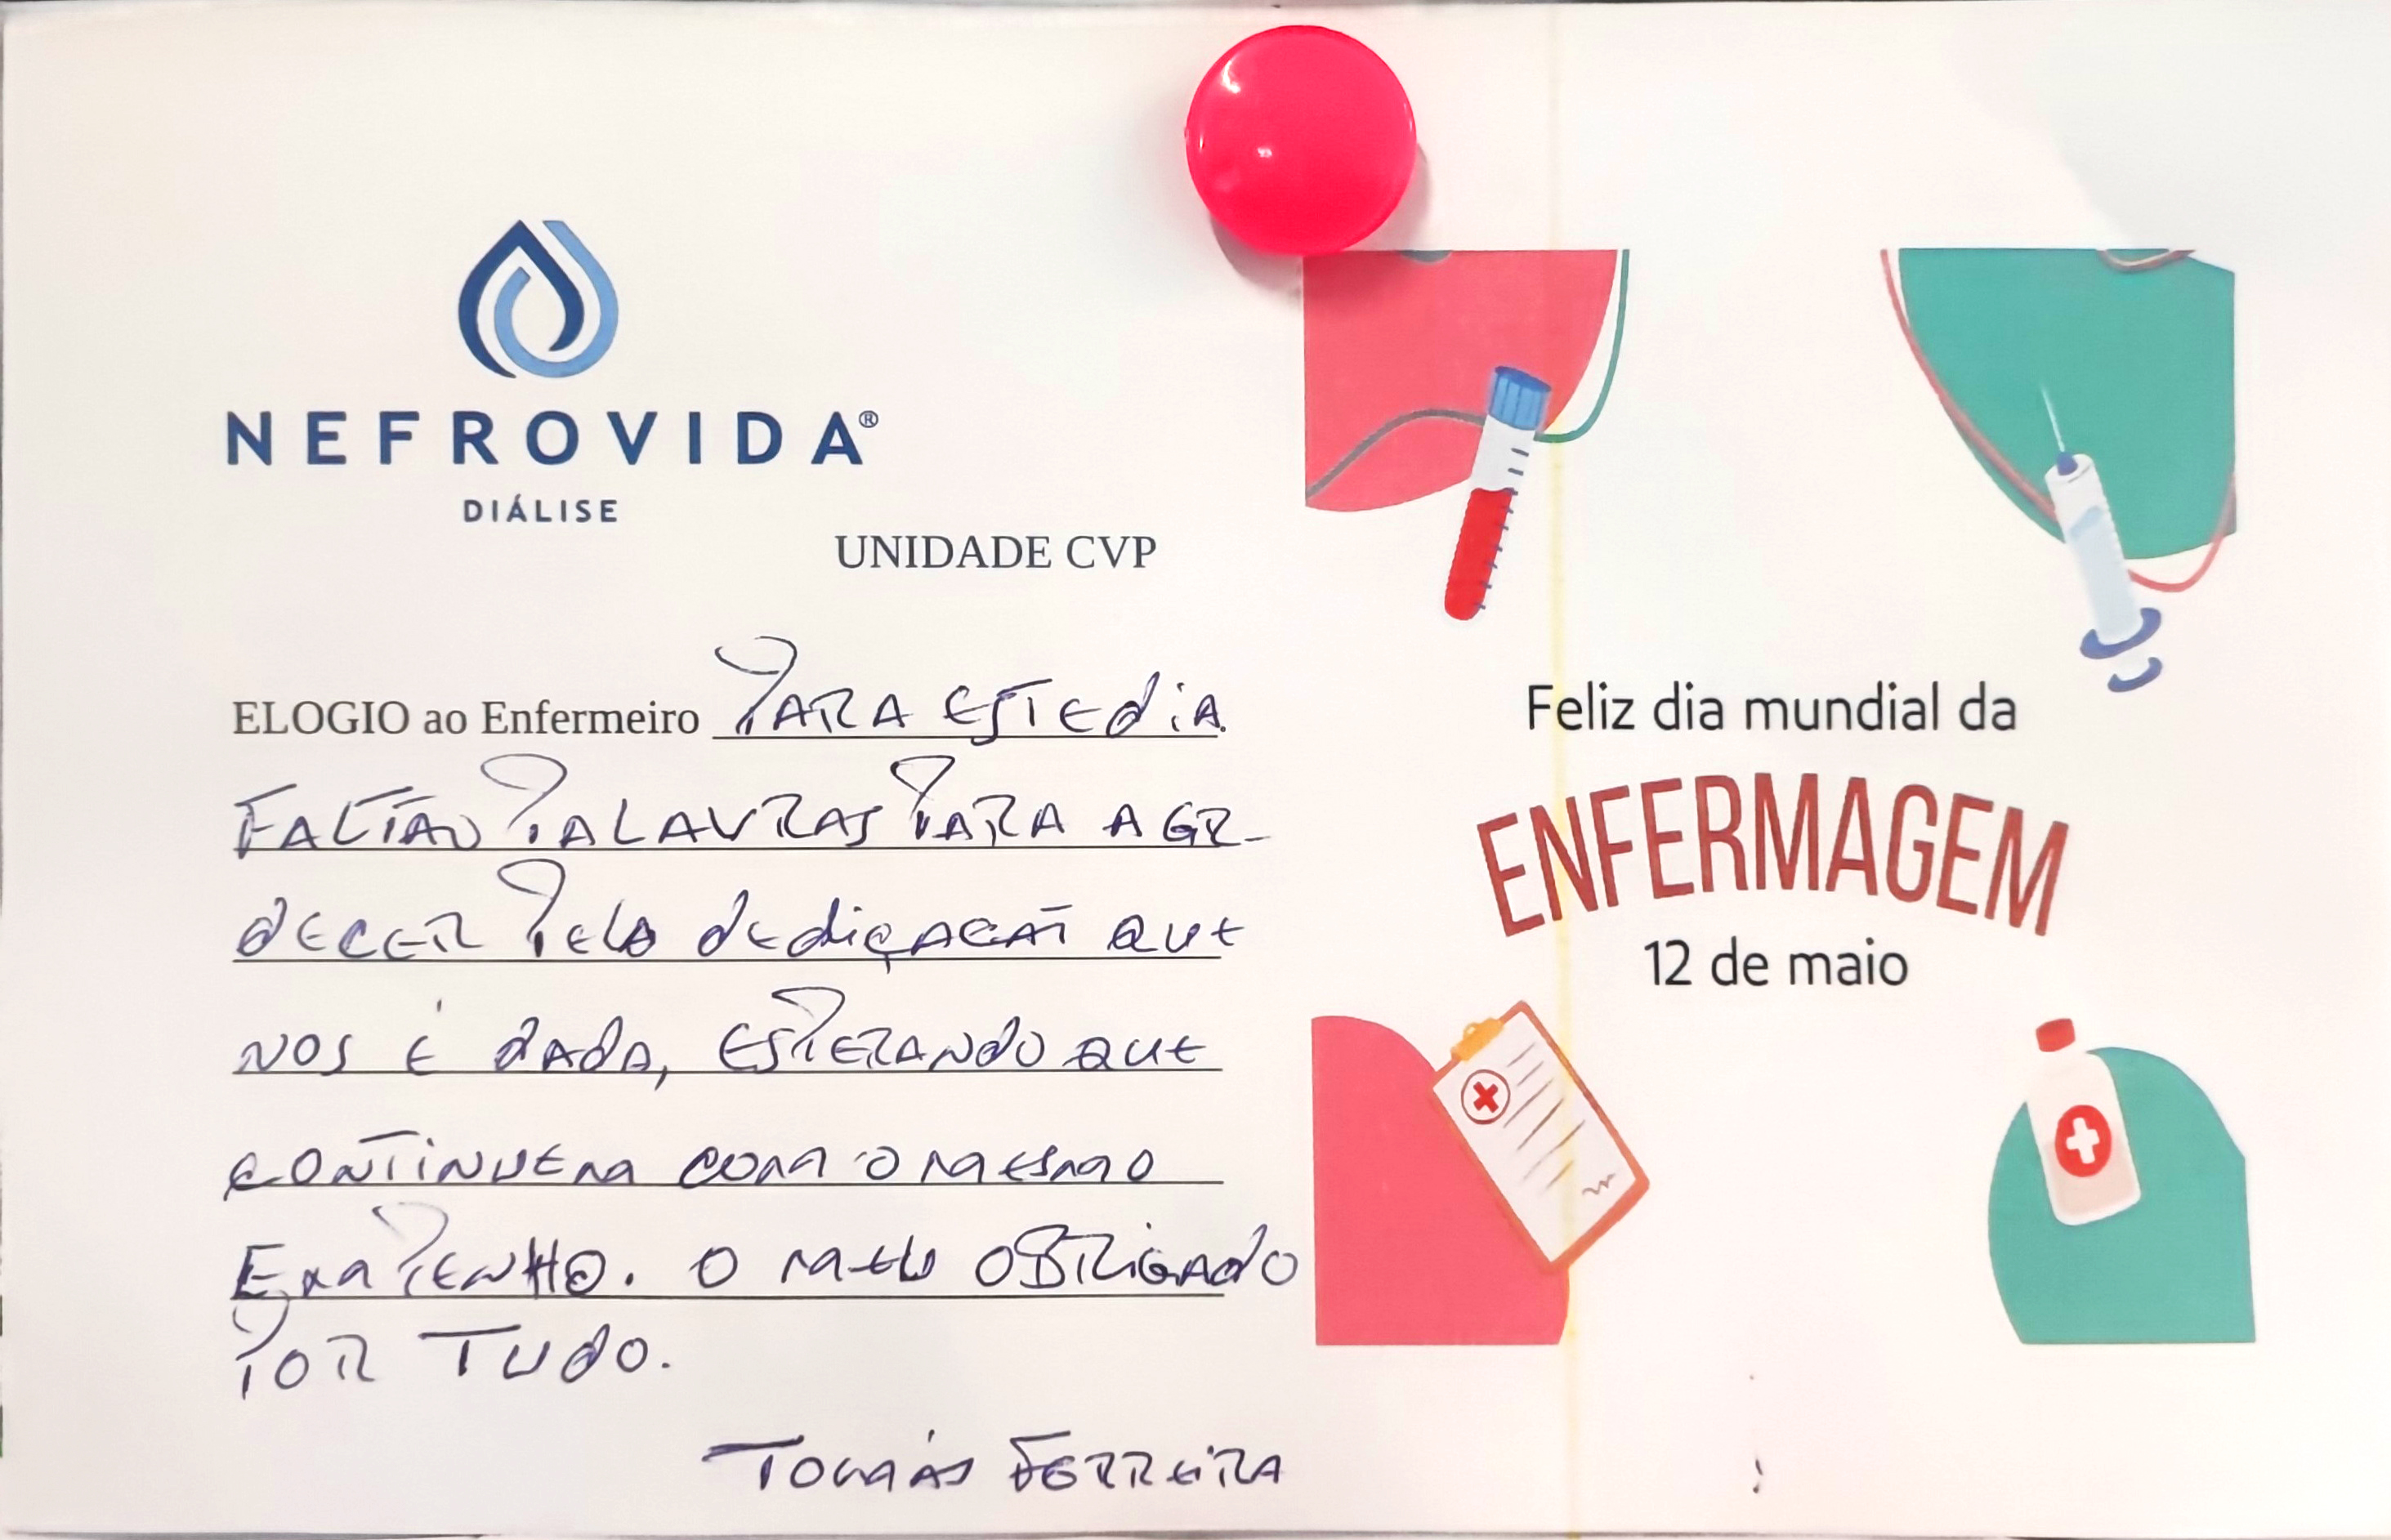 NEFROVIDA®
DIÁLISE
UNIDADE CVP
ELOGIO ao Enfermeiro PARA ESTE dia.
FALTÃO PALAVRAS PARA AGR-
DECER Pelo dediçacaõ QUE
NOS É dAdA, ESPERANdO QUE
CONTINUEM COM O MESMO
EMPENHO. O MEU OBRIGAdO
POR TUdO.
TOMÁS FERREIRA
Feliz dia mundial da
ENFERMAGEM
12 de maio